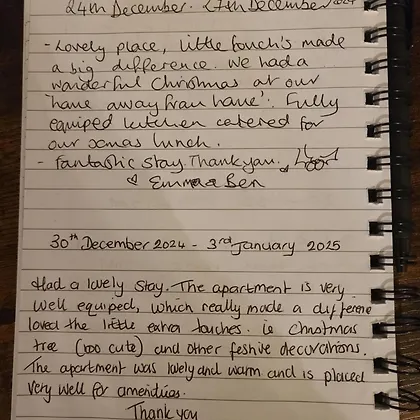 24th December. 27th December 2024
- Lovely place, little touch's made
a big difference. We had a
wonderful Christmas at our
'home away from home'. Fully
equiped kitchen catered for
our xmas lunch.
- Fantastic stay. Thankyou.
♡ Emma & Ben
30th December 2024 - 3rd January 2025
Had a lovely stay. The apartment is very
well equiped, which really made a differene
loved the little extra touches. ie Christmas
tree (too cute) and other festive decorations.
The apartment was lovely and warm and is placed
very well for amenities.
Thank you